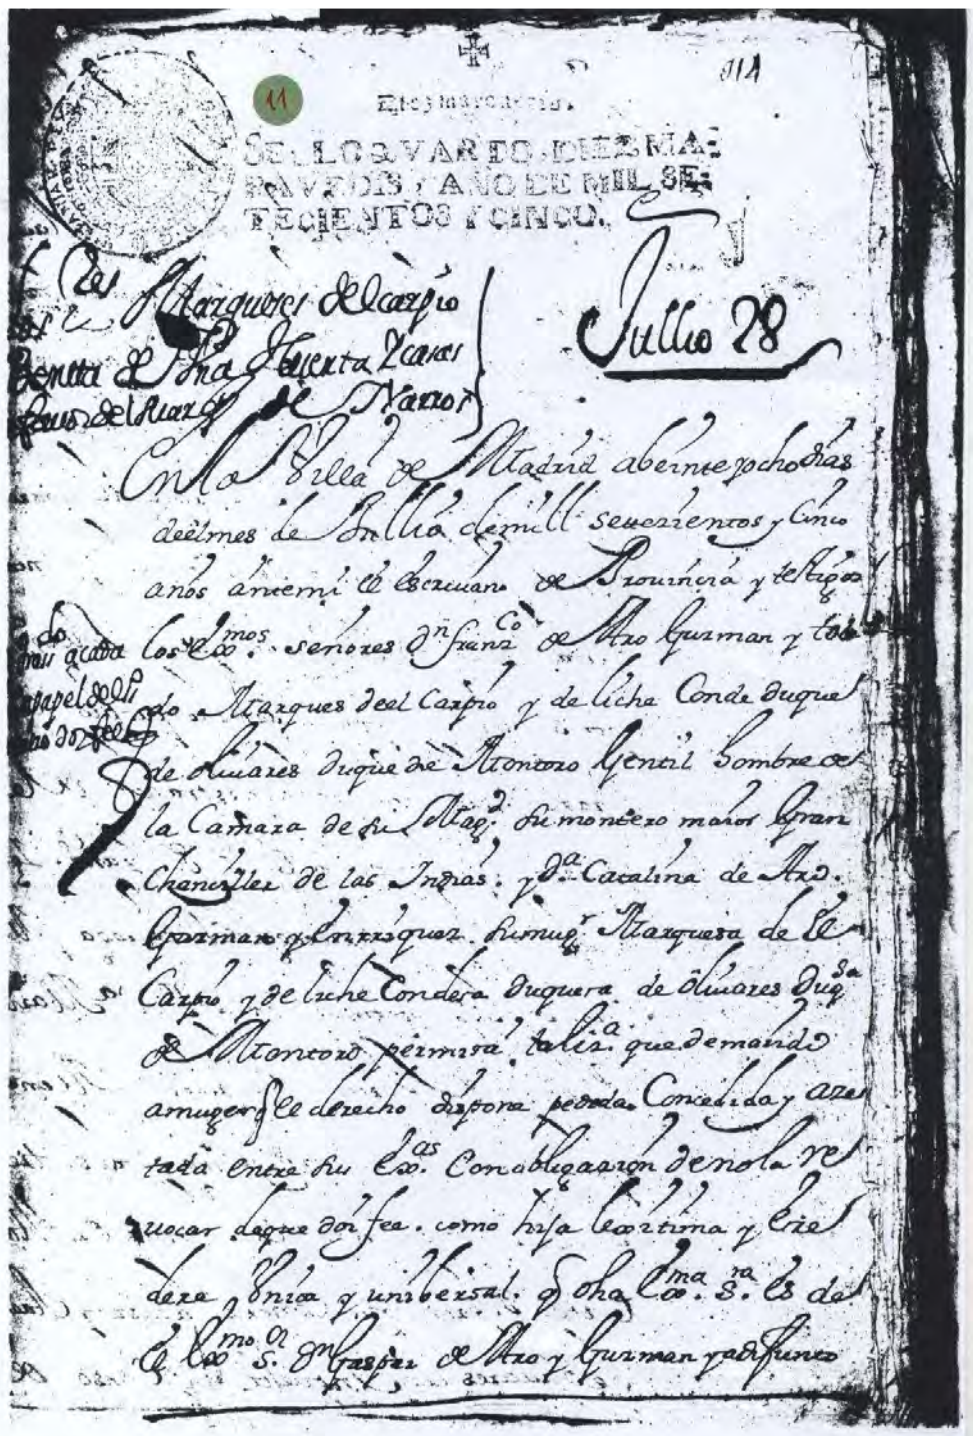 914
11
Diez maravedis.
SELLO QVARTO, DIEZ MA:
RAVEDIS, AÑO DE MIL SE:
TECIENTOS Y CINCO.
Marqueses del carpio
Venta de Vna Huerta Y casas
de Narros
Jullio 28
En la Villa de Madrid a beinte y ocho dias
de el mes de Jullio de mill settezientos y Cinco
años ante mi el escriuano de Prouincia y testigos
los exmos. señores Dn franco de Aro Guzman y tole
do Marques de el Carpio y de liche Conde duque
de oliuares duque de Montoro Gentil hombre de
la Camara de su Magd. su montero maior Gran
Chanziller de las Indias. y Da. Catalina de Aro.
Guzman y Enrriquez su mugr Marquesa de el
Carpio y de liche Condesa duquesa de oliuares duqsa
de Montoro premisa la liza. que de marido
a muger el derecho dispone pedida Concedida y aze
tada entre sus Exas. Con obligazion de no la re
uocar de que doi fee. como hija lexitima y Ere
dera Vnica y unibersal. q dha Exma. sra. es de
el Exmo sor. Dn Gaspar de Aro y Guzman ya difunto